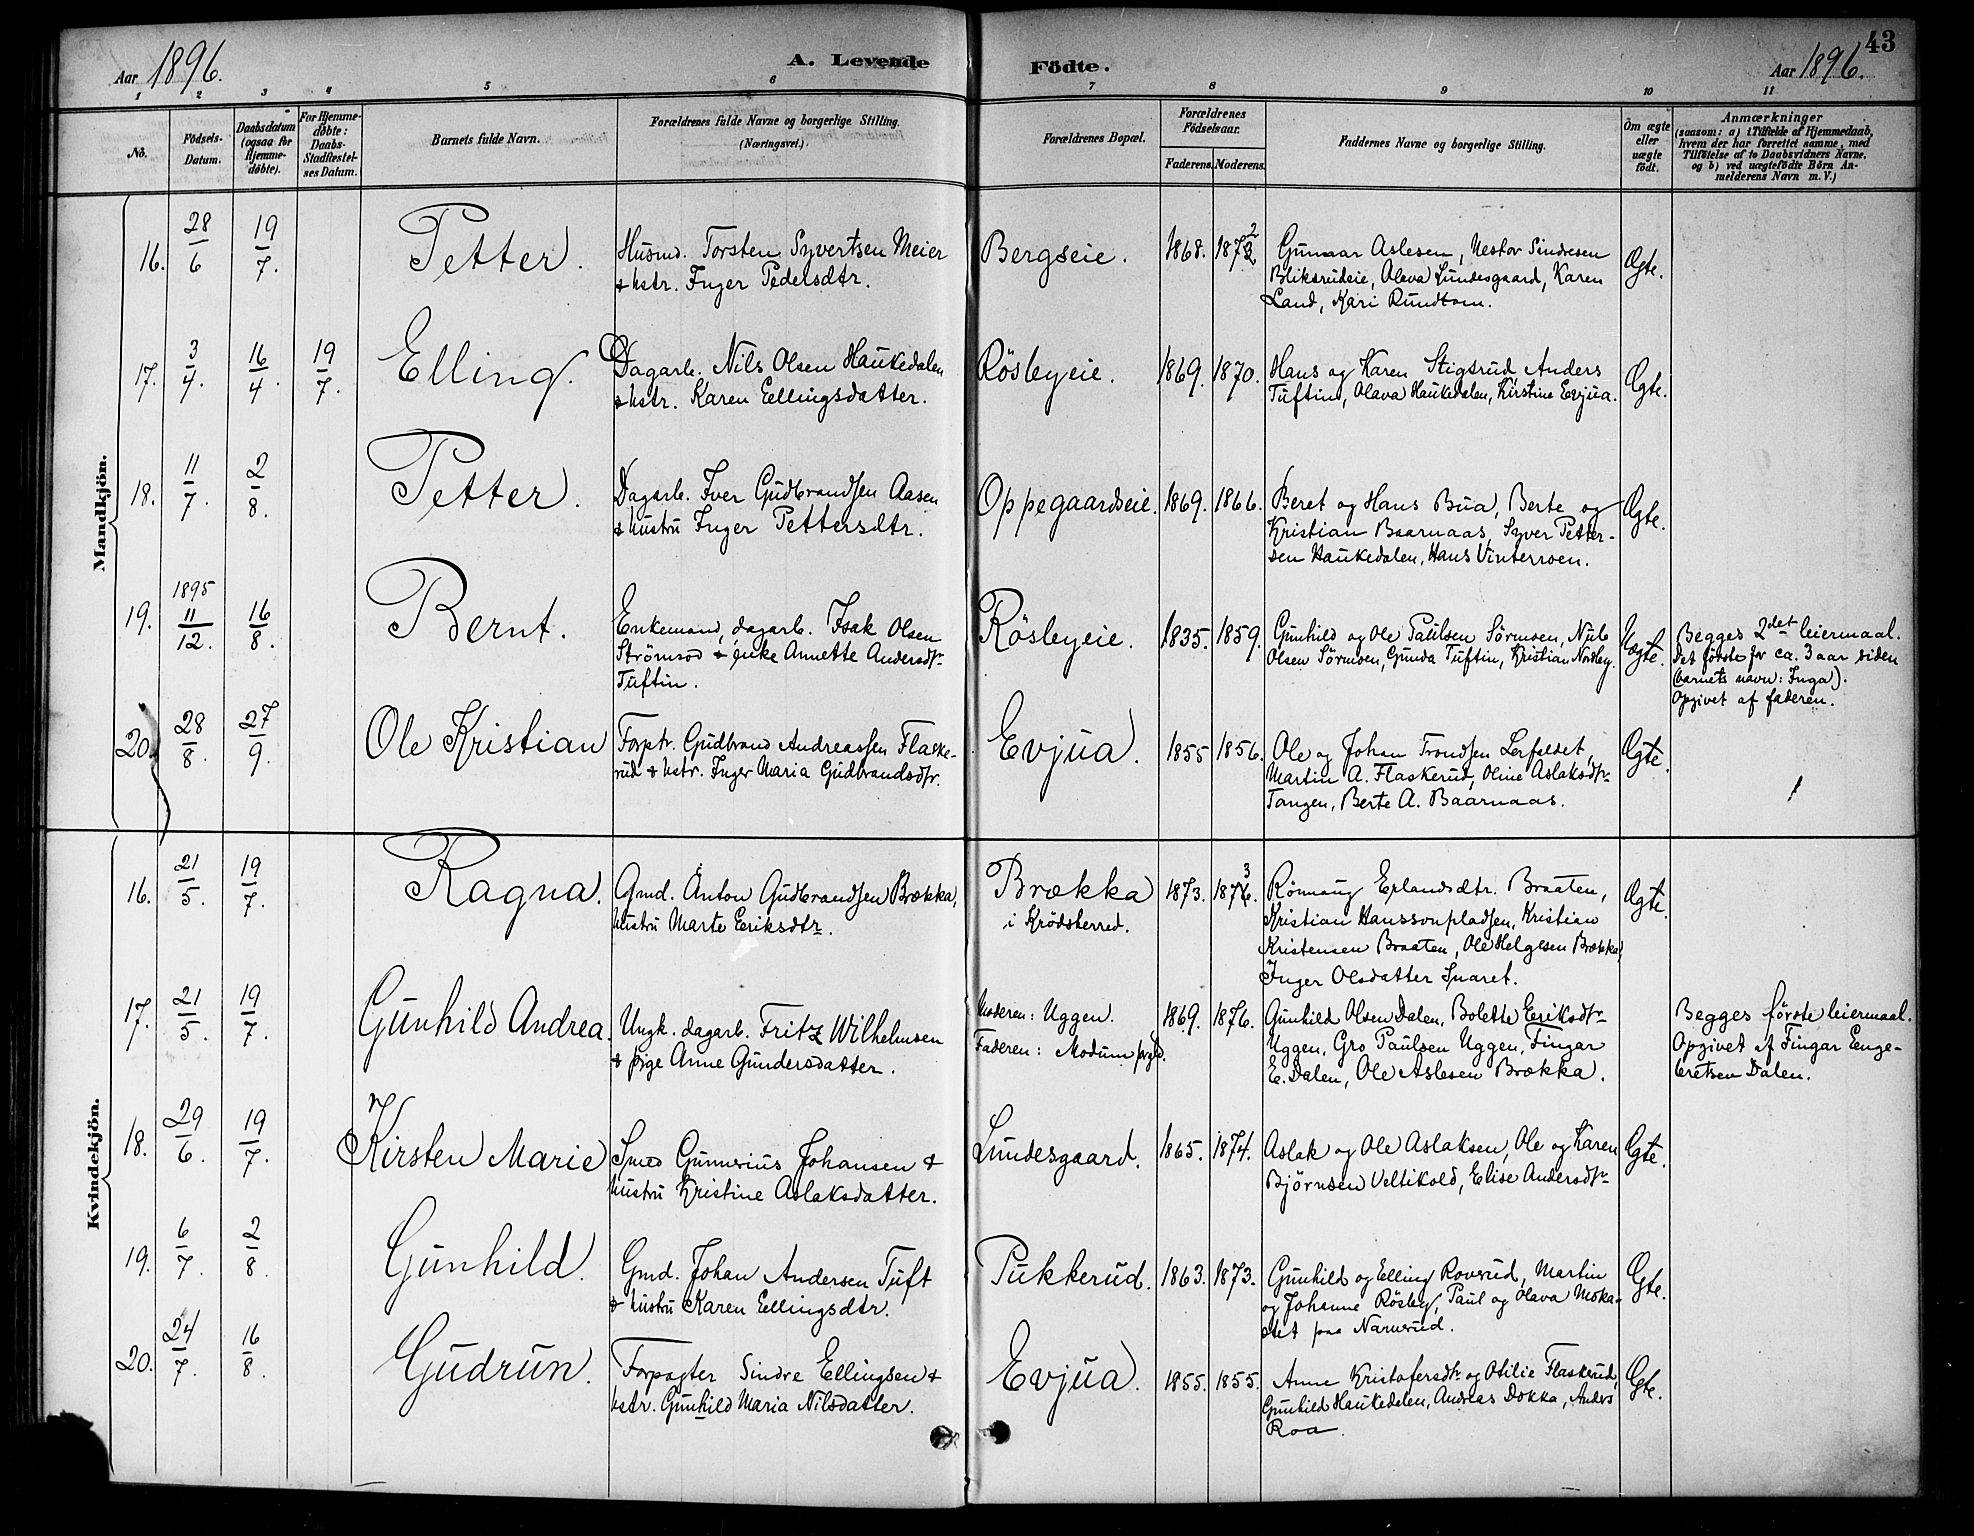 Aar 1896.
A. Levende
Födte.
Aar 1896.
43
1 2 3 4 5 6 7 8 9 10 11
No.
Födsels-
Datum.
Daabsdatum
(ogsaa for
Hjemme-
døbte).
For Hjemme-
døbte:
Daabs-
Stadfæstel-
ses Datum.
Barnets fulde Navn.
Forældrenes fulde Navne og borgerlige Stilling.
(Næringsvei.)
Forældrenes Bopæl.
Forældrenes
Födselsaar.
Faderens. Moderens.
Faddernes Navne og borgerlige Stilling.
Om ægte
eller
uægte
födt.
Anmærkninger
(saasom: a) i Tilfælde af Hjemmedaab,
hvem der har forrettet samme, med
Tilföielse af to Daabsvidners Navne,
og b) ved uægtefödte Börn An-
melderens Navn m. V.)
Mandkjön.
16. 28/6 19/7. Petter.
Husmd. Torsten Syvertsen Meier
& hstr. Inger Pedersdtr.
Bergseie. 1868. 1872
Gunnar Aslesen, Nestor Sindresen
Bliksrudeie, Olava Lundesgaard, Karen
Land, Kari Rundtom.
Ægte.
17. 3/4. 16/4. 19/7. Elling.
Dagarb. Nils Olsen Haukedalen
& hstr. Karen Ellingsdatter.
Rösbyeie. 1869. 1870.
Hans og Karen Stigsrud Anders
Tuftin, Olava Haukedalen, Kirstine Evjua.
Ægte.
18. 11/7. 2/8. Petter.
Dagarb. Iver Gudbrandsen Aasen
& hustru Inger Pettersdtr.
Oppegaardseie. 1869. 1866.
Beret og Hans Bua, Berte og
Kristian Baarnaas, Syver Petter-
sen Haukedalen, Hans Vinterroen.
Ægte.
19. 1895 11/12. 16/8. Bernt.
Enkemand, dagarb. Isak Olsen
Strömsod & enke Annette Andersdtr
Tuftin.
Rösbyeie. 1835. 1859.
Gunhild og Ole Paulsen Sörmoen, Nub
Olsen Sörmoen, Gunda Tuftin, Kristian Nordby.
Uægte.
Begges 2det leiermaal.
Det første for ca. 3 aar siden
(barnets navn: Inga).
Opgivet af faderen.
20. 28/8. 27/9. Ole Kristian
Forptr. Gudbrand Andreassen Flaske-
rud & hstr. Inger Maria Gudbrandsdtr.
Evjua. 1855 1856.
Ole og Johan Trondsen Lerfaldet,
Martin A. Flaskerud, Oline Aslaksdtr
Tangen, Berte A. Baarnaas.
Ægte.
Kvindekjön.
16. 21/5. 19/7. Ragna.
Gmd. Anton Gudbrandsen Brækka,
hustru Marte Eriksdtr.
Brækka
i Krödsherred.
1873. 1873
Rönnaug Erlandsdtr. Braaten,
Kristian Hanssonpladsen, Kristian
Kristensen Braaten, Ole Helgesen Brækka,
Inger Olsdatter Snaret.
Ægte.
17. 21/5. 19/7. Gunhild Andrea.
Ungk. dagarb. Fritz Wilhelmsen
& pige Anne Gundersdatter.
Moderen: Uggen.
Faderen: Modum prgld.
1869. 1876.
Gunhild Olsen Dalen, Bolette Eriksdtr
Uggen, Gro Paulsen Uggen, Fingar
E. Dalen, Ole Aslesen Brækka.
Begges første leiermaal.
Opgivet af Fingar Enge-
bretsen Dalen.
18. 29/6. 19/7. Kirsten Marie
Smed Gunnerius Johansen &
hustru Kristine Aslaksdatter.
Lundesgaard. 1865. 1874.
Aslak og Ole Aslaksen, Ole og Karen
Björnsen Veltikold, Elise Andersdtr
Ægte.
19. 6/7. 2/8. Gunhild.
Gmd. Johan Andersen Tuft
& hustru Karen Ellingsdtr.
Pukkerud. 1863. 1873.
Gunhild og Elling Rovrud, Martin
og Johanne Rösby, Paul og Olava Moka-
stet paa Narverud.
Ægte.
20. 24/7. 16/8. Gudrun.
Forpagter Sindre Ellingsen &
hstr. Gunhild Maria Nilsdatter.
Evjua. 1855. 1855.
Anne Kristofersdtr og Otilie Flaskerud,
Gunhild Haukedalen, Andreas Dokka, Anders
Roa.
Ægte.